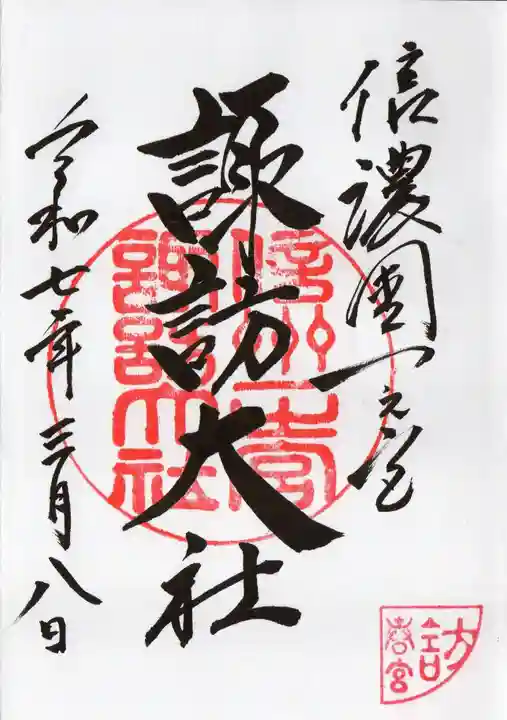 信濃國一之宮
諏訪大社
令和七年三月八日
信州一宮
諏訪大社
訪
春宮